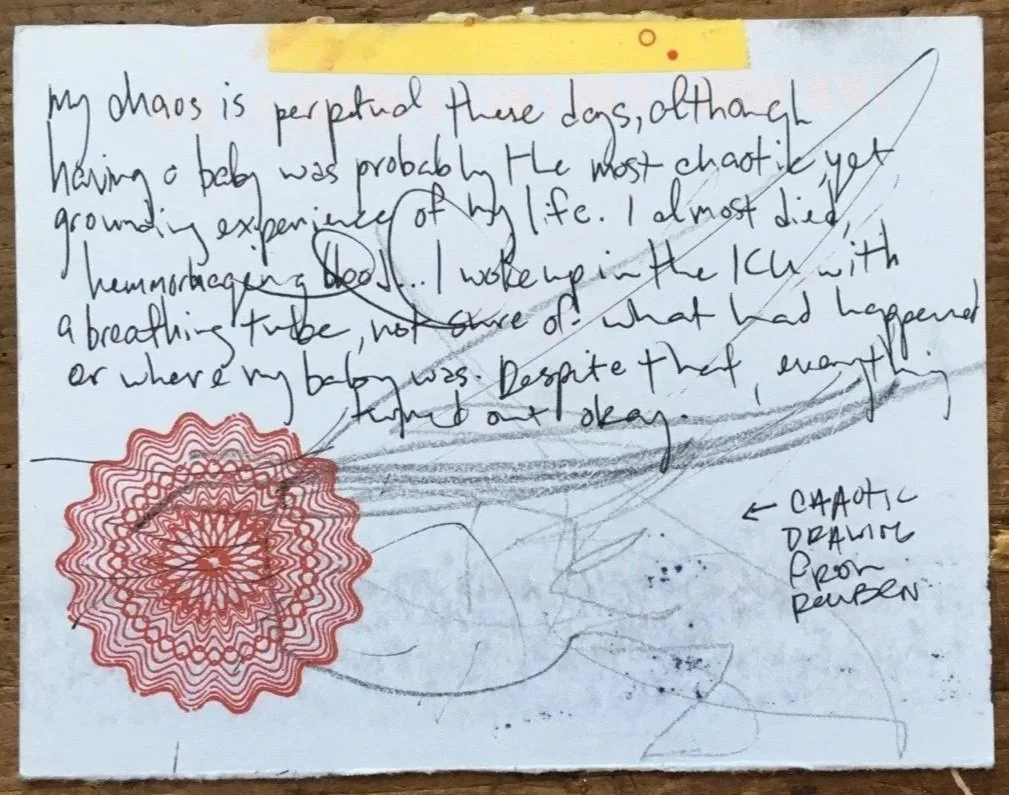 my chaos is perpetual these days, although
having a baby was probably the most chaotic, yet
grounding experience of my life. I almost died,
hemmorhageing blood... I woke up in the ICU with
a breathing tube, not sure of what had happened
or where my baby was. Despite that, everything
turned out okay.
← CHAOTIC
DRAWING
FROM
REUBEN